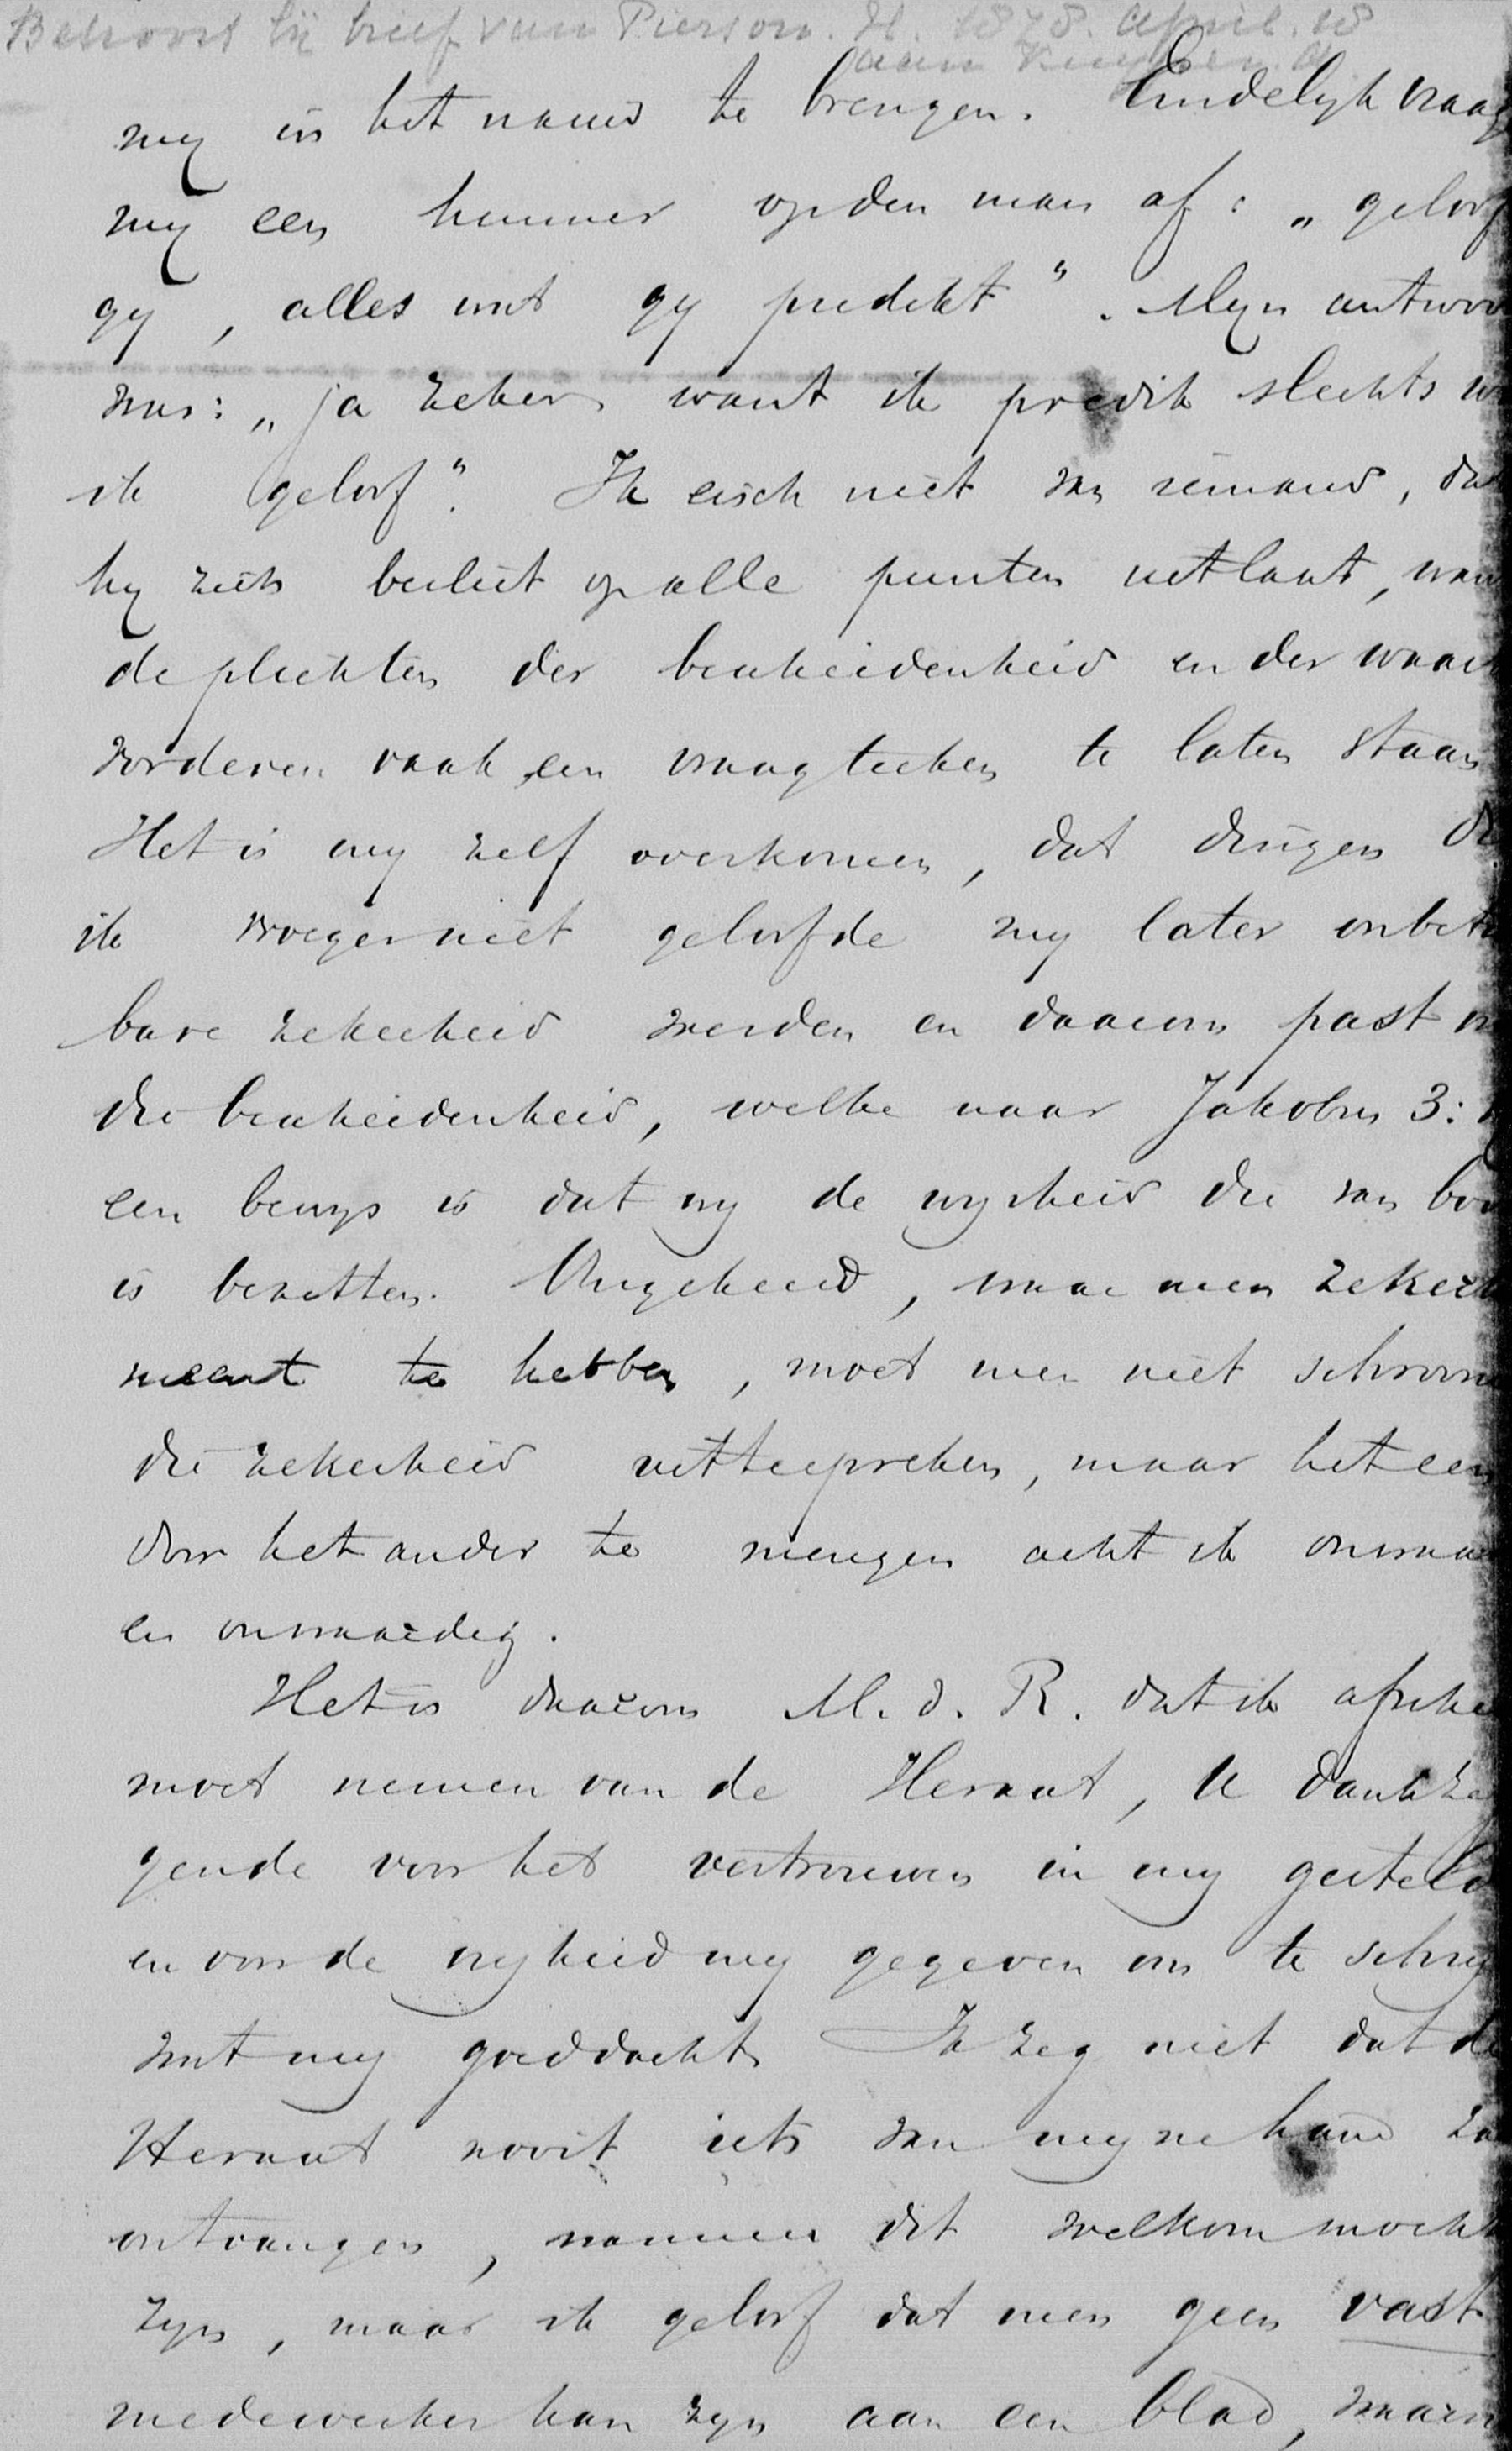 Behoort bij brief van Pierson. H. 1878. april. 18
aan Kuyper. A
my in het nauw te brengen. Eindelyk vraag
my een hunner op den man af: „geloof
gy, alles wat gy predikt”. Myn antwoo
was: „ja zeker want ik predik slechts w
ik geloof”. Ik eisch niet van iemand, da
hy zich beslist op alle punten uitlaat, wan
de plichten der bescheidenheid en der waar
vorderen vaak een vraagteeken te laten staan
Het is my zelf overkomen, dat dingen di
ik vroeger niet geloofde my later onbetw
bare zekerheid werden en daarom past m
die bescheidenheid, welke naar Jakobus 3:
een bewys is dat wy de wysheid die van bov
is bezitten. Omgekeerd, waar men zekerh
meent te hebben, moet men niet schroom
die zekerheid uittespreken, maar het een
door het ander te mengen acht ik onwaa
en onwaardig.
Het is daarom M. d. R. dat ik afsche
moet nemen van de Heraut, U dankze
gende voor het vertrouwen in my gesteld
en voor de vryheid my gegeven om te schry
wat my goeddacht. Ik zeg niet dat de
Heraut nooit iets van myne hand za
ontvangen, wanneer dit welkom mocht
zyn, maar ik geloof dat men geen vast
medewerker kan zyn aan een blad, waarv